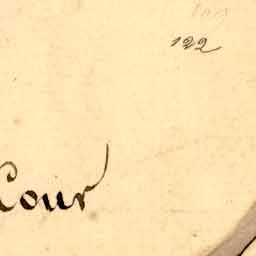 122
Cour